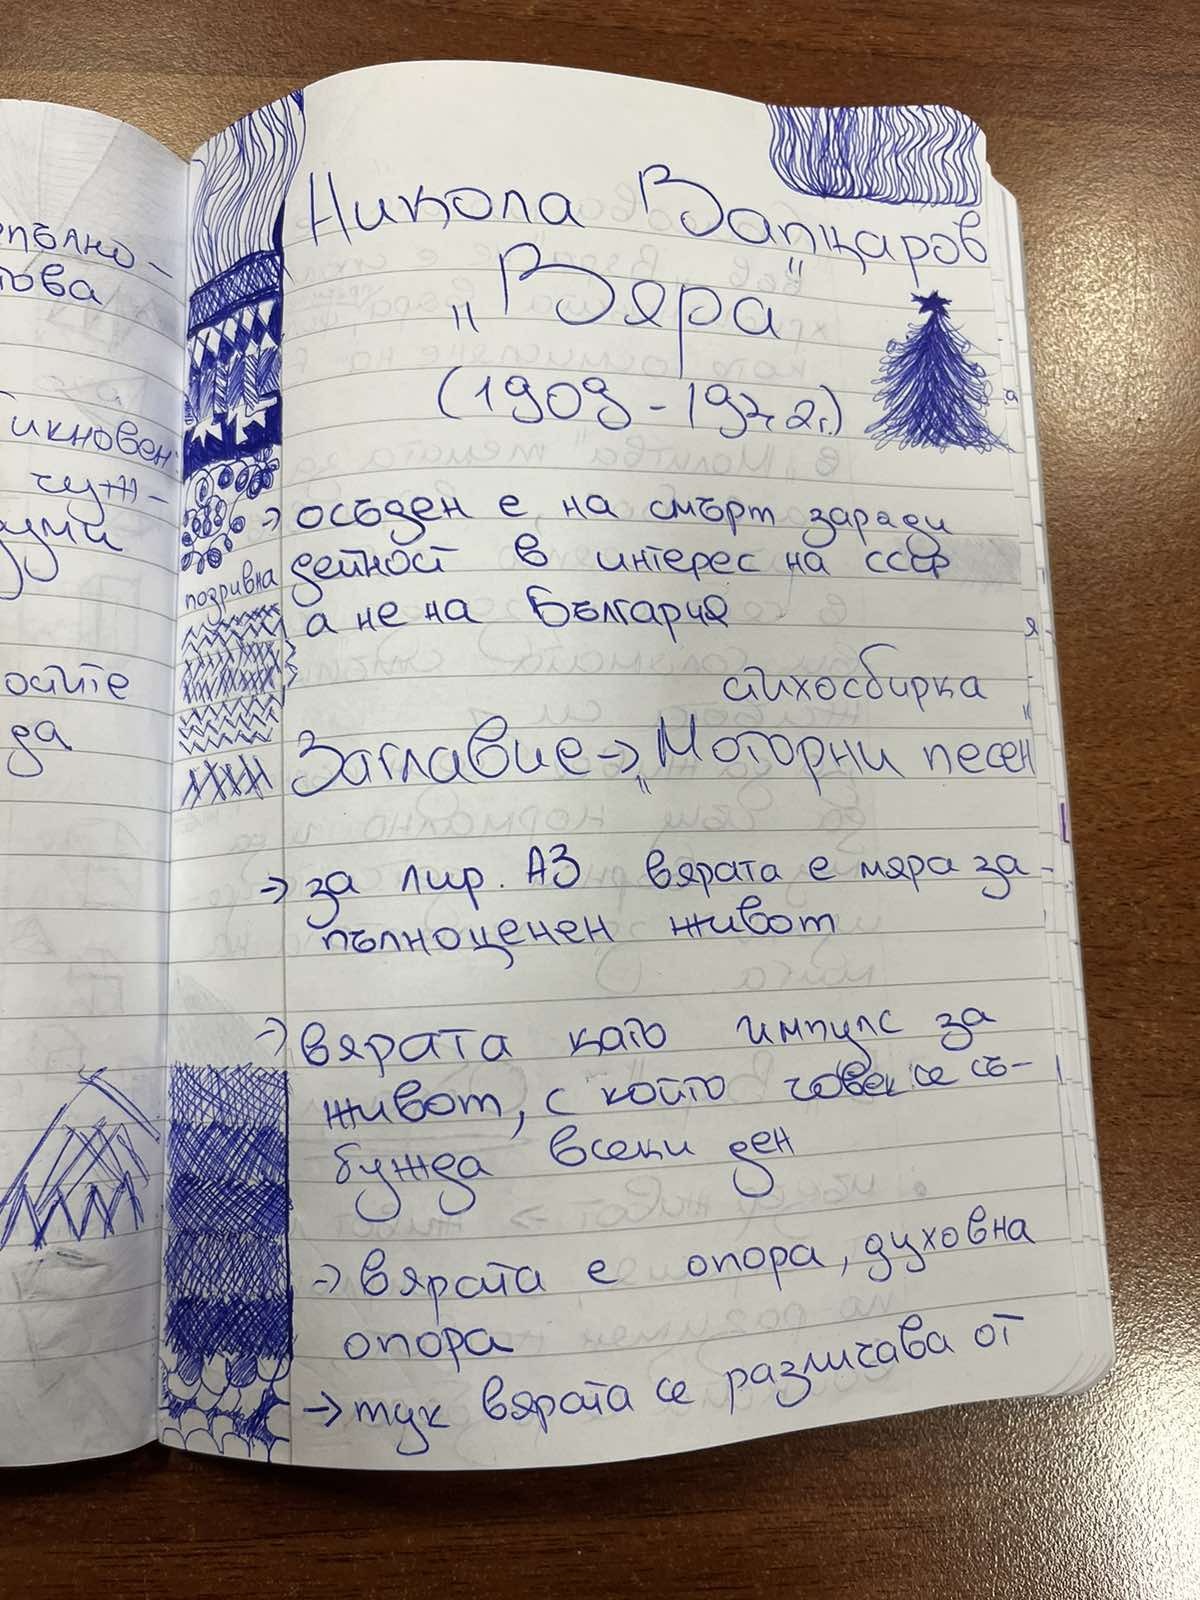 епълно-
това
икновен
чуж-
думи
осйте
да
Никола Вапцаров
„Вяра“
(1909 - 1942г.)
→ осъден е на смърт заради
дейност в интерес на СССР
позривна
а не на България
стихосбирка
Заглавие → „Моторни песен“
→ за лир. АЗ вярата е мяра за
пълноценен живот
→ вярата като импулс за
живот, с който човек се съ-
бужда всеки ден
→ вярата е опора, духовна
опора
→ тук вярата се различава от